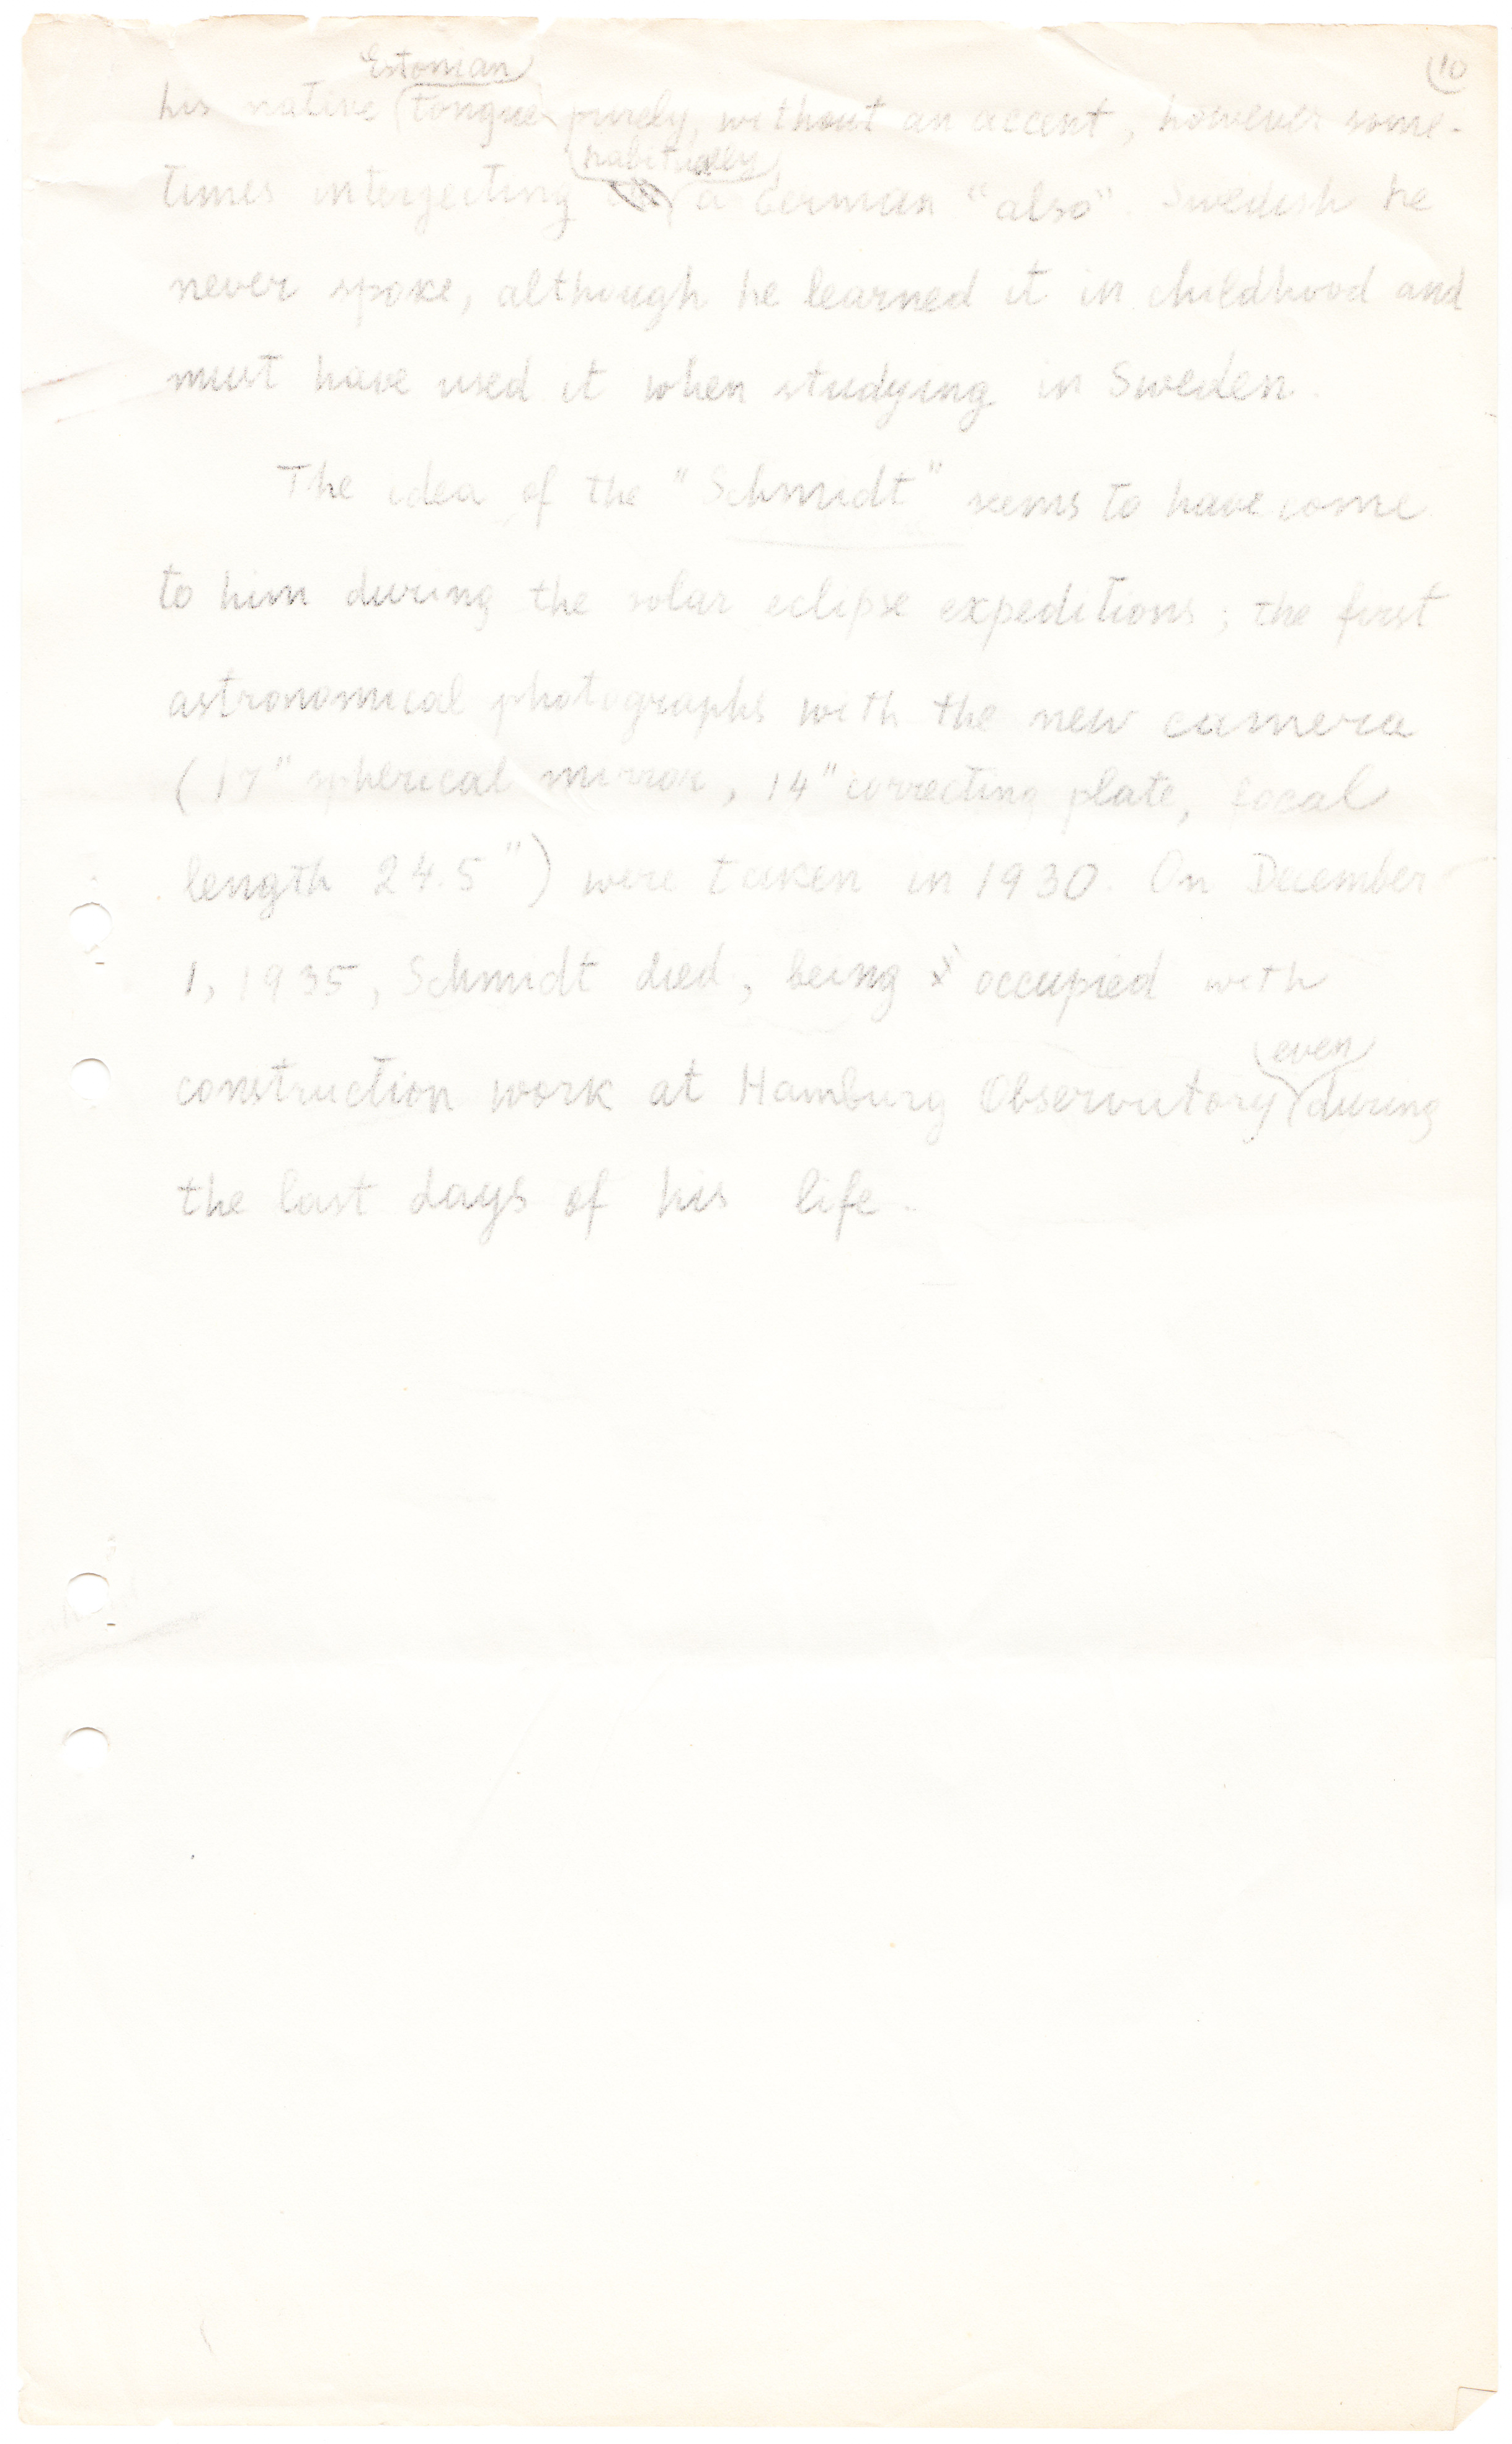 10
his native Estonian tongue purely, without an accent, however some-
times interjecting habitually a German "also". Swedish he
never spoke, although he learned it in childhood and
must have used it when studying in Sweden.
The idea of the "Schmidt" seems to have come
to him during the solar eclipse expeditions; the first
astronomical photographs with the new camera
(17" spherical mirror, 14" correcting plate, focal
length 24.5") were taken in 1930. On December
1, 1935, Schmidt died, being occupied with
construction work at Hamburg Observatory even during
the last days of his life.